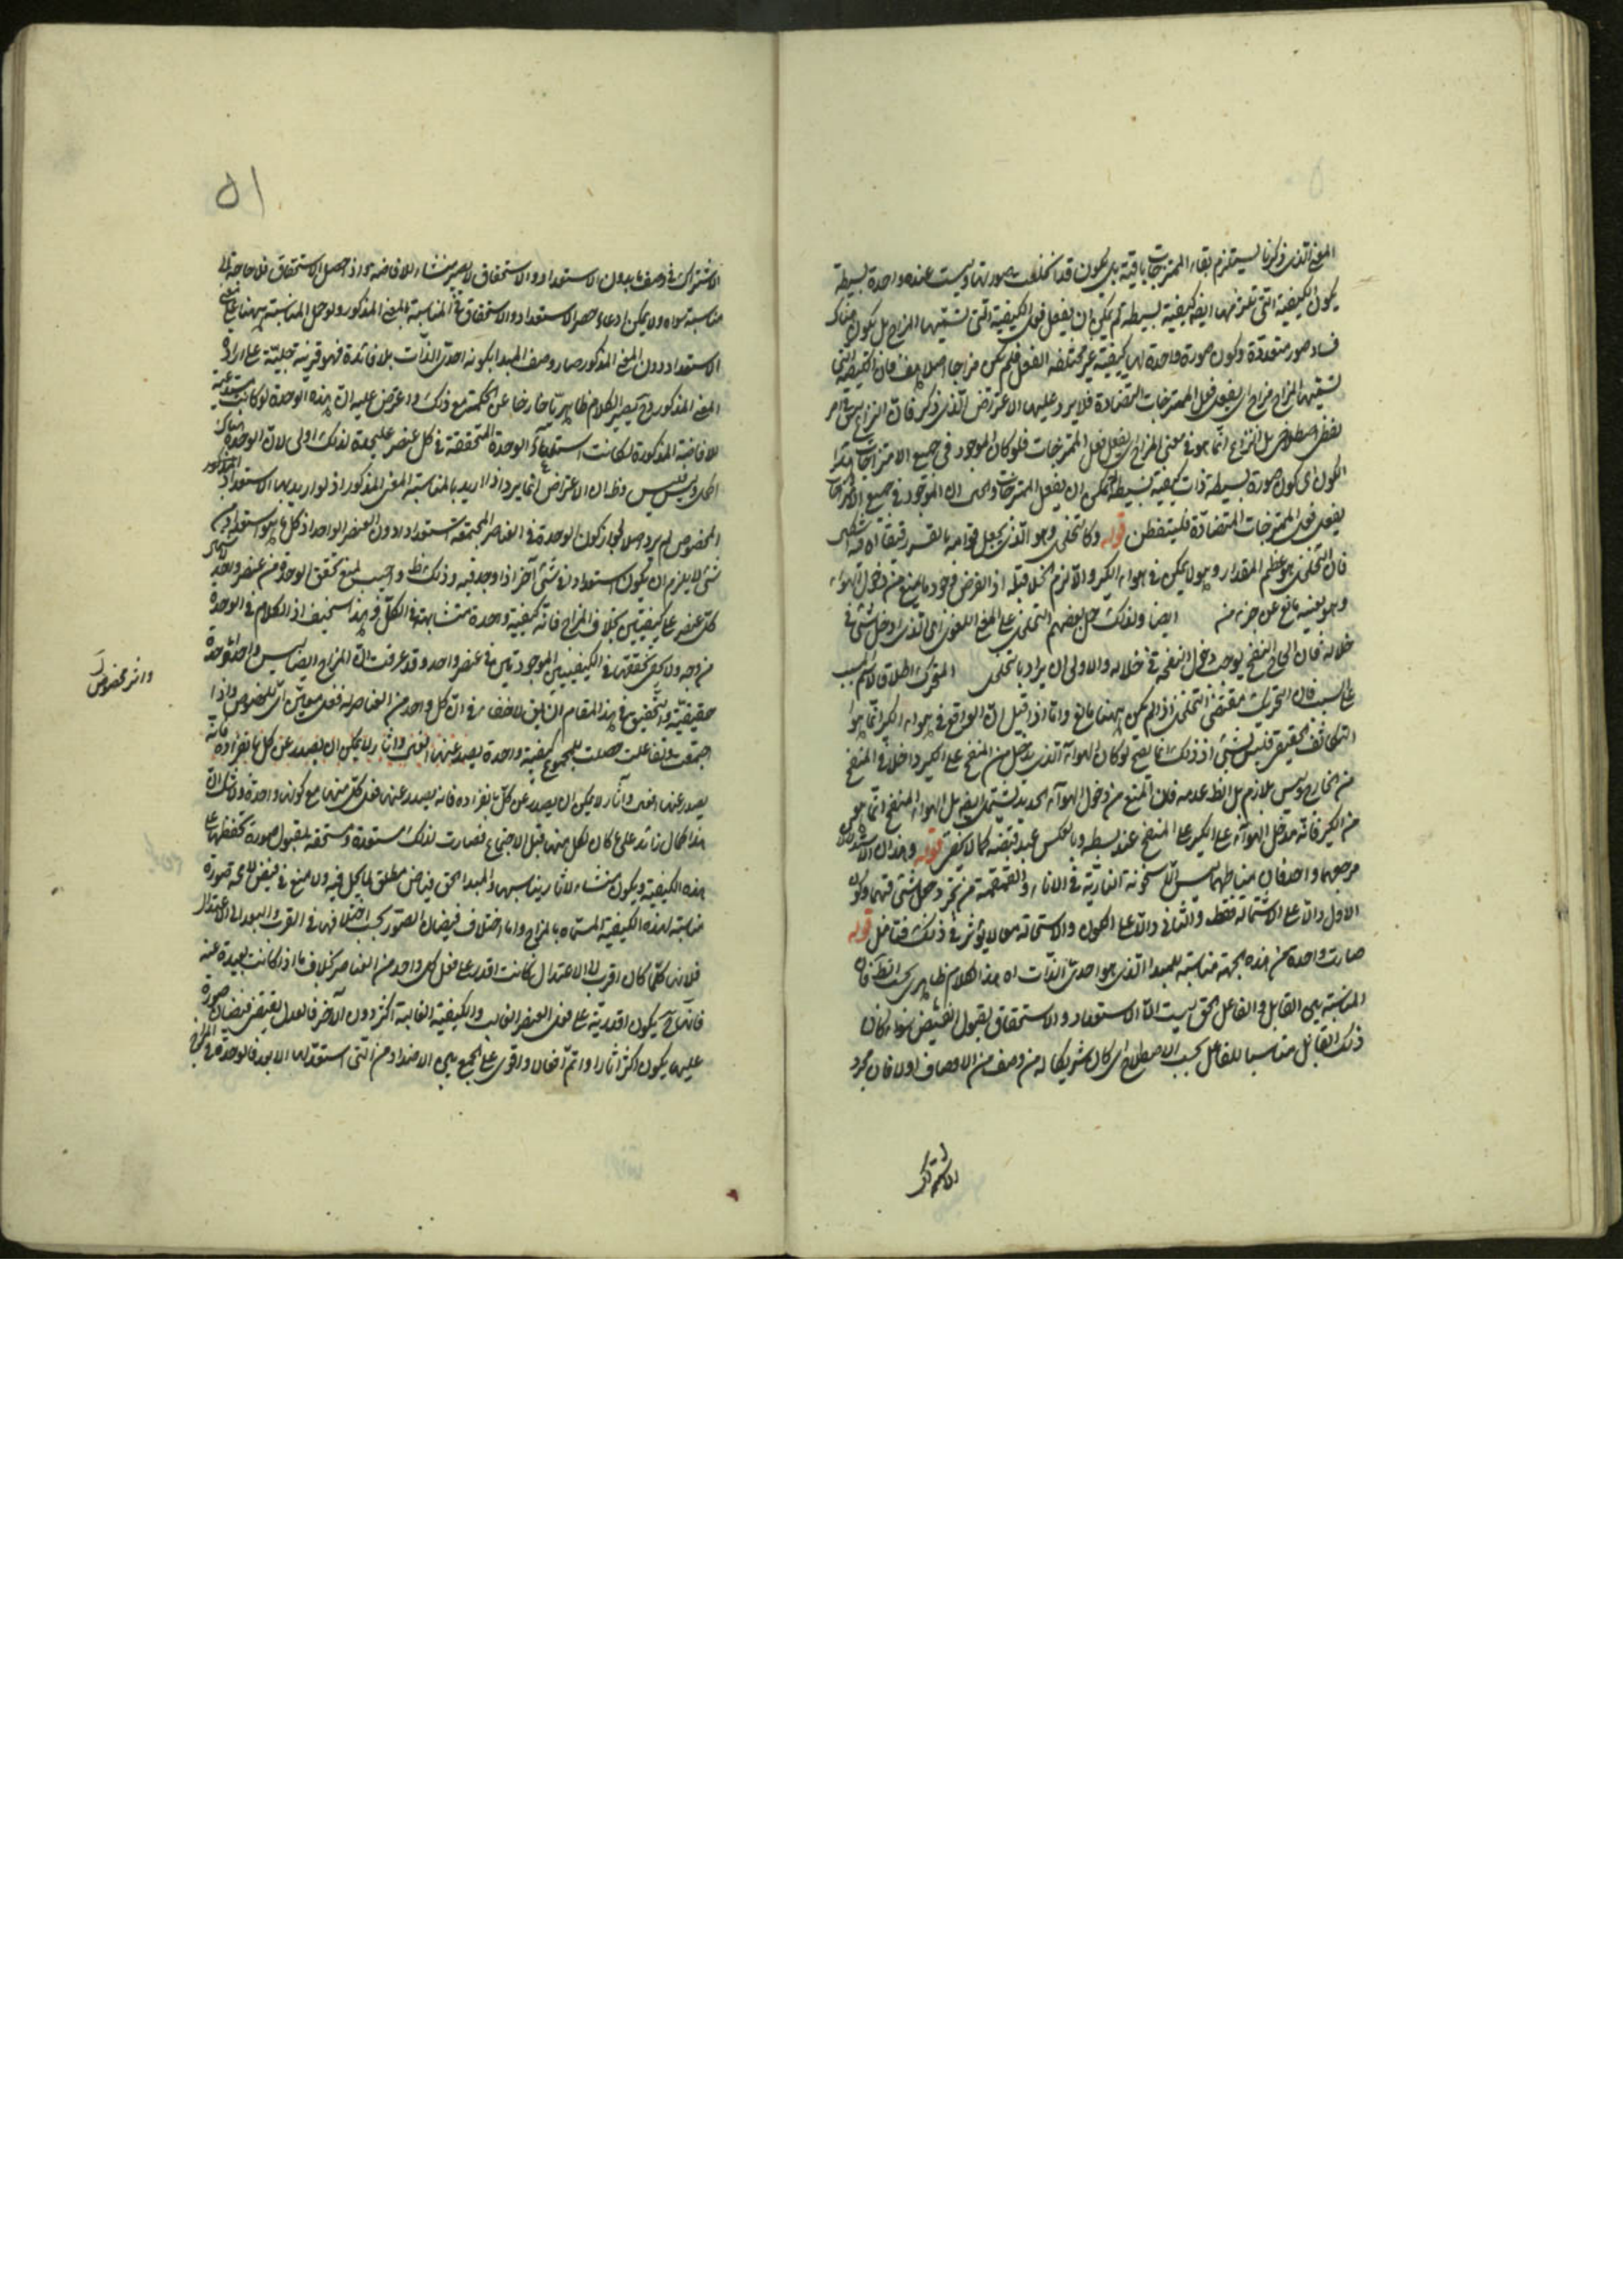 المعنى الذى ذكرنا يستلزم بقاء الممتزجات باقية بل يكون قد انخلعت صورتها ولبست عنده واحدة بسيطة
يكون الكيفية التى تلزمها ايضا كيفية بسيطة لم يمكن ان يفعل فعل الكيفية التى نسميها المزاج بل يكون هناك
فساد صور متعددة وكون صورة واحدة لها كيفية غير مختلفة الفعل فلم يكن مزاجا اصلا هف فان الكيفية التى
نسميها المزاج مزاج اى يفعل فعل الممتزجات المتضادة فلا يرد عليها الاعتراض الذى ذكر فان النزاع ليس فى امر
لفظى اصطلاحى بل النزاع انما هو فى معنى المزاج اى يفعل فعل الممتزجات فلو كان الموجود فى جميع الامتزاجات هذا
الكون اى كون صورة بسيطة ذات كيفية بسيطة لم يمكن ان يفعل الممتزجات والحس ان الموجود فى جميع الامتزاجات
يفعل فعل الممتزجات المتضادة فليتفطن قوله وكالتخلخل وهو الذى يجعل قوامه بالقسر رقيقا اه فيه
فان التخلخل هو عظم المقدار وهو لا يمكن فى هواء الكير والا لزم الخلا قبله اذ الفرض وجود ما يمنع من دخول الهواء
وهو بعينه مانع عن جزء منه ايضا ولذلك حمل بعضهم التخلخل على المعنى اللغوى اى الذى ادخل شئ فى
خلاله فان الحاح النفخ يوجب دخول النفخة فى خلاله والاولى ان يراد بالتخلخل المتحرك اطلاقا لاسم المسبب
على السبب فان التحريك مقتضى التخلخل اذا لم يكن ههنا مانع واما اذا قيل ان الواقع فى هواء الكير انما هو
التكاثف الحقيقى فليس بشئ اذ ذلك انما يصح لو كان الهواء الذى يدخل من المنفخ على الكير داخلا فى المنفخ
من الخارج وليس بلازم بل الظ عدمه فان المنع من دخول الهواء الجديد يشتمله ايضا بل الهواء المنفخ انما هو
من الكير فانه مدخل الهواء على الكير على المنفخ عند بسطه وبالعكس عند قبضه كما لا يخفى قوله وهذان الاستدلالان
مرجعهما واحد فان مناطهما ليس الا سخونة النارية فى الاناء والقمقمة من غير دخول شئ فيهما وكون
الاول دالا على الاستحالة فقط والثانى دالا على الكون والاستحالة معا لا يؤثر فى ذلك فتأمل قوله
صارت واحدة من هذه الجهة مناسبة للمبدا الذى هو احدى الذات اه هذا الكلام ظاهرى بحسب النظر فان
المناسبة بين القابل والفاعل الحق ليست الا الاستعداد والاستحقاق لقبول الفيض سواء كان
ذلك القابل مناسبا للفاعل بحسب الاصطلاح اى كان شريكا له من وصف من الاوصاف اولا فان مجرد
الاشتراك
٥١
الاشتراك فى وصف ما بدون الاستعداد والاستحقاق لا يصير منشاء للافاضة واذ حصل الاستحقاق فلا حاجة الى
مناسبة سواه ولا يمكن ادعاء حصر الاستعداد والاستحقاق فى المناسبة بالمعنى المذكور ولو حمل المناسبة ههنا على معنى
الاستعداد دون المعنى المذكور صار وصف المبدا بكونه احدى الذات بلا فائدة فهو قرينة جلية على ارادة
المعنى المذكور فح يصير الكلام ظاهريا خارجا عن الحكمة مع ذلك واعترض عليه ان هذه الوحدة لو كانت مستدعية
للافاضة المذكورة لكانت استدعاء الوحدة المتحققة فى كل عنصر علیحدة لذلك اولى لان الوحدة هناك
اكمل وليس فليس وظ ان الاعتراض انما يرد اذا اريد بالمناسبة المعنى المذكور اذ لو اريد بها الاستعداد المذكور
المخصوص لم يرد اصلا لجواز كون الوحدة فى العناصر المجتمعة استعدادا دون العنصر الواحد اذ كل ما هو استعداد فى
شئ لا يلزم ان يكون استعدادا فى شئ آخر اذا وجد فيه وذلك ظ واجيب بمنع تحقق الوحدة فى عنصر واحد لاشتمال
كل عنصر على كيفيتين بخلاف المزاج فانه كيفية واحدة متشابهة فى الكل وهذا سخيف اذ الكلام فى الوحدة
من وجه ولا يخفى تحققها فى الكيفيتين الموجودتين فى عنصر واحد وقد عرفت ان المزاج ايضا ليس واحدا وحدة
حقيقية والتحقيق فى هذا المقام ان يقال لا خفاء فى ان كل واحد من العناصر له فعل معين اى مخصوص واذا
واثر مخصوص
اجتمعت وتفاعلت حصلت للمجموع كيفية واحدة يصدر عنها افعال وآثار لا يمكن ان يصدر عن كل بانفراده فانه
يصدر عنها افعال وآثار لا يمكن ان يصدر عن كل بانفراده فانه يصدر عنها فعل كل منها مع كونها واحدة ولا شك ان
هذا كمال زائد على ما كان لكل منها قبل الاجتماع فصارت لذلك مستعدة ومستحقة لقبول صورة تحفظها على
هذه الكيفية ويكون منشاء لآثار يناسبها والمبدا الحق فياض مطلق لا بخل فيه ولا منع فيفيض عليه صورة
مناسبة لهذه الكيفية المسماة بالمزاج واما اختلاف فيضان الصور بحسب اختلافها فى القرب والبعد الى الاعتدال
فلانها كلما كان اقرب الى الاعتدال كانت اقدر على فعل كل واحد من العناصر بخلاف ما اذا كانت بعيدة عنه
فانها ح يكون اقدريته على فعل العنصر الغالب والكيفية الغالبة اكثر دون الآخر فالعدل يقتضى فيضان صورة
عليها يكون اكثر آثارا واتم افعالا واقوى على الجمع بين الاضداد من التى استعد لها الابعد فالوحدة فى المزاج